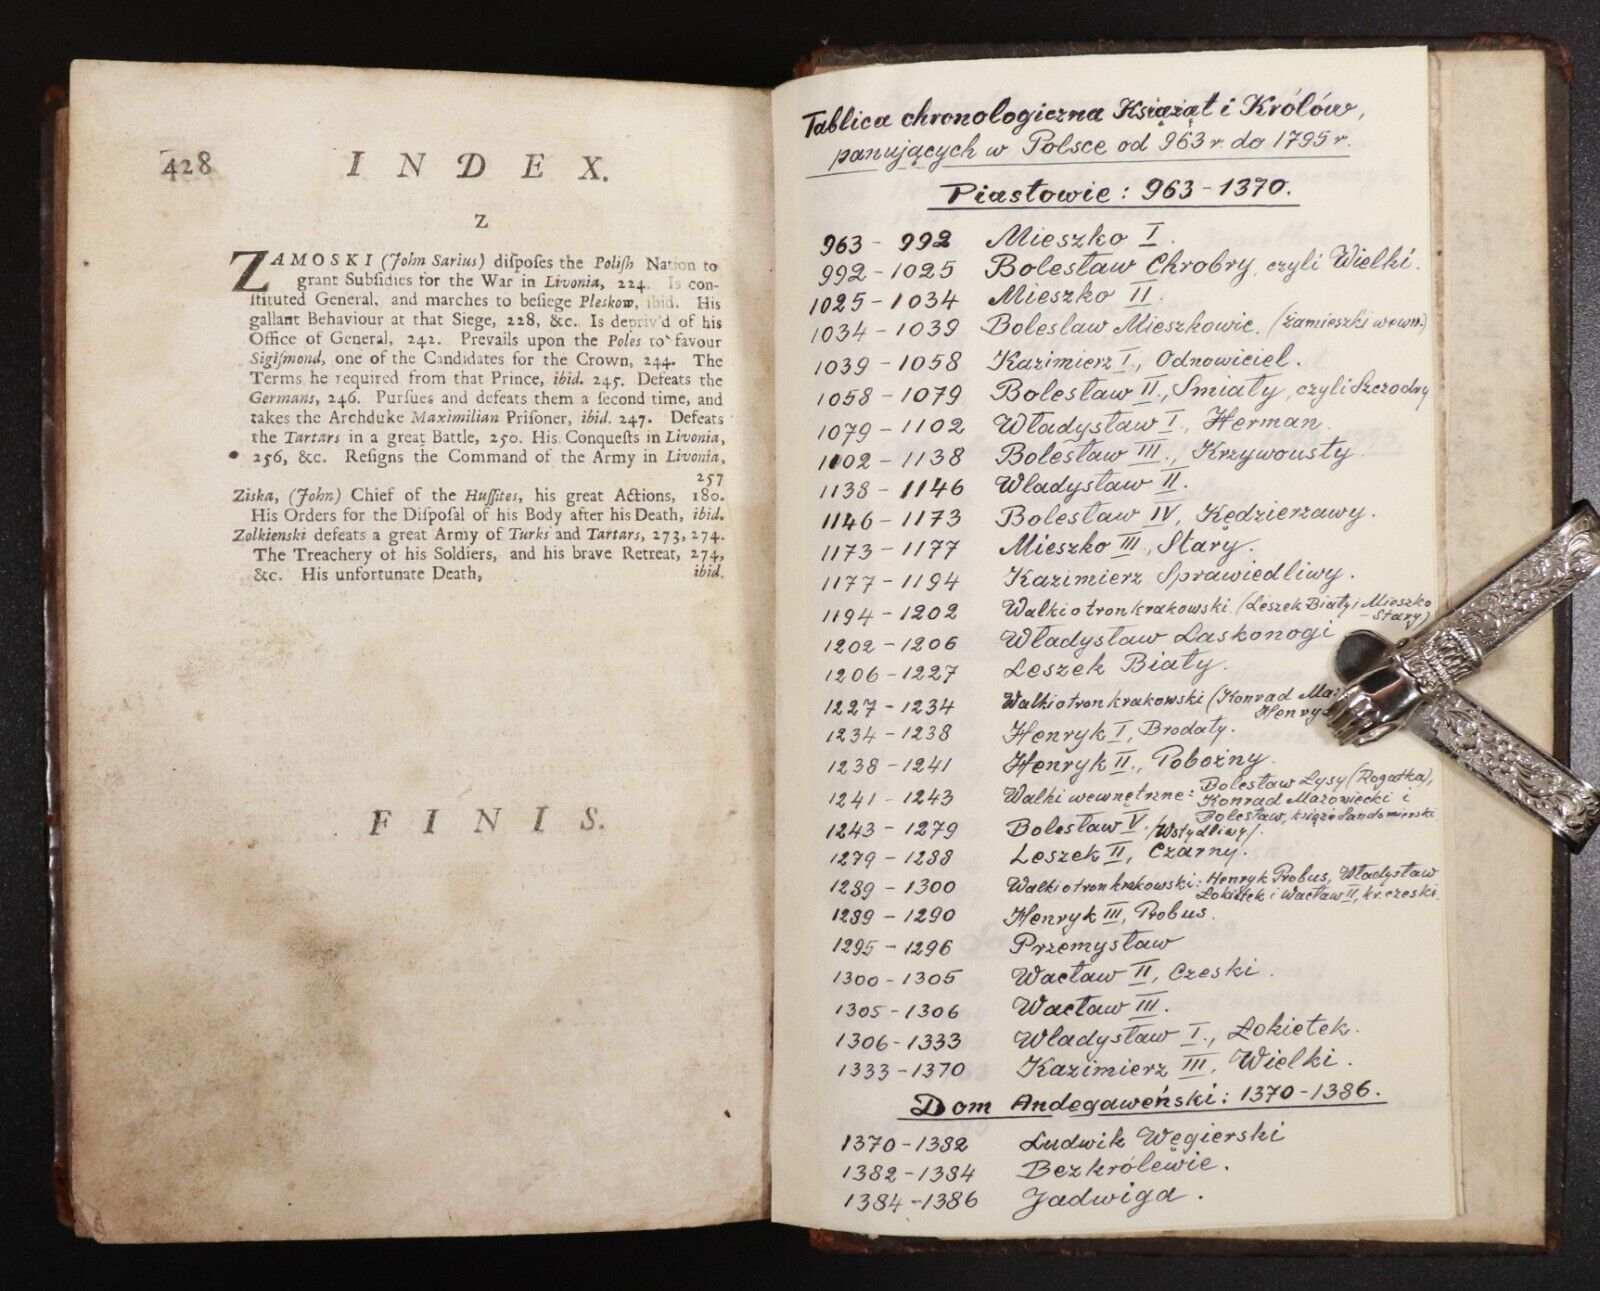 428
INDEX.
Z
ZAMOSKI (John Sarius) diſpoſes the Poliſh Nation to
grant Subſidies for the War in Livonia, 224. Is con-
ſtituted General, and marches to beſiege Pleskow, ibid. His
gallant Behaviour at that Siege, 228, &c. Is depriv'd of his
Office of General, 242. Prevails upon the Poles to favour
Sigiſmond, one of the Candidates for the Crown, 244. The
Terms he required from that Prince, ibid. 245. Defeats the
Germans, 246. Purſues and defeats them a ſecond time, and
takes the Archduke Maximilian Priſoner, ibid. 247. Defeats
the Tartars in a great Battle, 250. His Conqueſts in Livonia,
256, &c. Reſigns the Command of the Army in Livonia,
257
Ziska, (John) Chief of the Huſſites, his great Actions, 180.
His Orders for the Diſpoſal of his Body after his Death, ibid.
Zolkienski defeats a great Army of Turks and Tartars, 273, 274.
The Treachery of his Soldiers, and his brave Retreat, 274,
&c. His unfortunate Death, ibid.
FINIS.
Tablica chronologiczna Książąt i Królów,
panujących w Polsce od 963 r. do 1795 r.
Piastowie: 963-1370.
963 - 992 Mieszko I.
992 - 1025 Bolesław Chrobry, czyli Wielki.
1025 - 1034 Mieszko II.
1034 - 1039 Bolesław Mieszkowic. (zamieszki wewn.)
1039 - 1058 Kazimierz I., Odnowiciel.
1058 - 1079 Bolesław II., Śmiały, czyli Szczodry
1079 - 1102 Władysław I., Herman.
1102 - 1138 Bolesław III., Krzywousty.
1138 - 1146 Władysław II.
1146 - 1173 Bolesław IV, Kędzierzawy.
1173 - 1177 Mieszko III, Stary.
1177 - 1194 Kazimierz Sprawiedliwy.
1194 - 1202 Walki o tron krakowski (Leszek Biały i Mieszko
- Stary)
1202 - 1206 Władysław Laskonogi
1206 - 1227 Leszek Biały.
1227 - 1234 Walki o tron krakowski (Konrad
1234 - 1238 Henryk I, Brodaty.
1238 - 1241 Henryk II., Pobożny.
1241 - 1243 Walki wewnętrzne: Bolesław Łysy (Rogatka),
Konrad Mazowiecki i
Bolesław, książę Sandomierski.
1243 - 1279 Bolesław V. /Wstydliwy/.
1279 - 1288 Leszek II, Czarny.
1289 - 1300 Walki o tron krakowski: Henryk Probus, Władysław
Łokietek i Wacław II, kr. czeski.
1289 - 1290 Henryk III, Probus.
1295 - 1296 Przemysław
1300 - 1305 Wacław II, Czeski.
1305 - 1306 Wacław III.
1306 - 1333 Władysław I., Łokietek.
1333 - 1370 Kazimierz III, Wielki.
Dom Andegaweński: 1370-1386.
1370 - 1382 Ludwik Węgierski
1382 - 1384 Bezkrólewie.
1384 - 1386 Jadwiga.